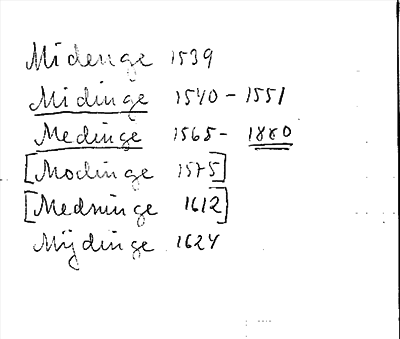 Midenge 1539
Midinge 1540 - 1551
Medinge 1565 - 1880
[Modinge 1575]
[Medninge 1612]
Mijdinge 1624